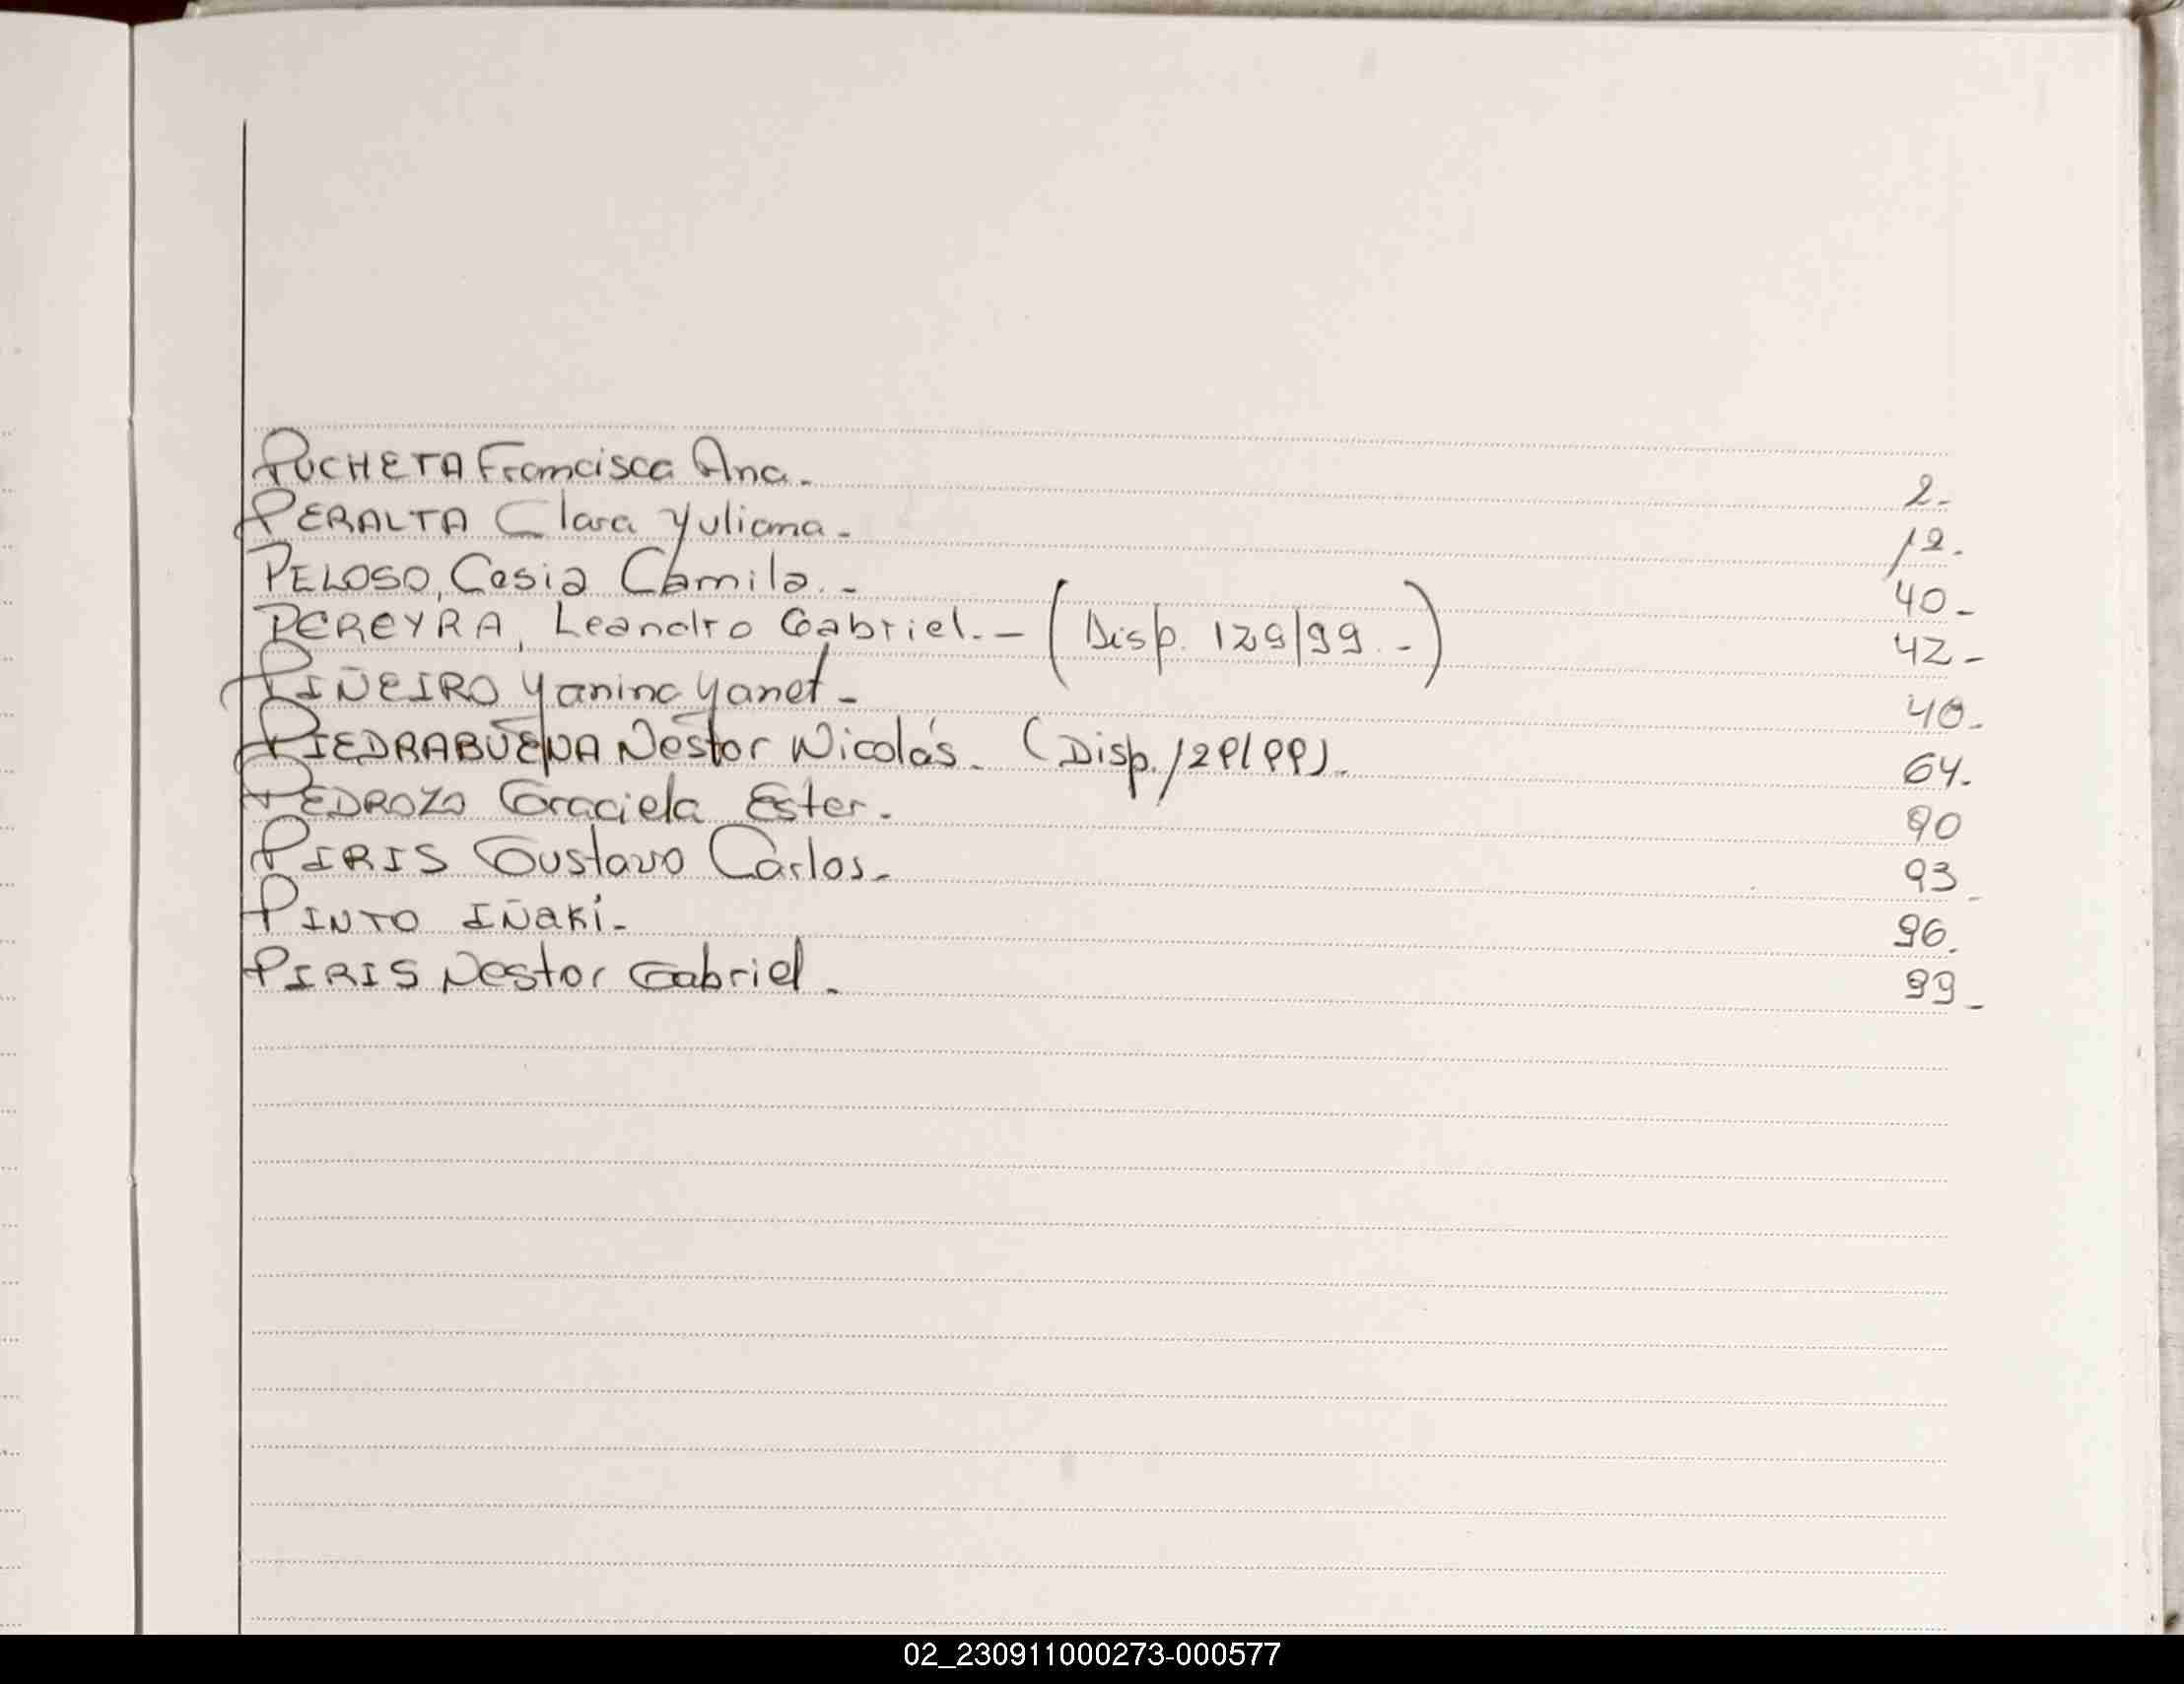 PUCHETA Francisca Ana. 2.-
PERALTA Clara Yuliana.- 12.-
PELOSO, Cesia Camila.- 40.-
PEREYRA, Leandro Gabriel.- (Disp. 129/99.-) 42-
PIÑEIRO Yanina Yanet.- 48.-
PIEDRABUENA Nestor Nicolás. (Disp. 129/99). 64.
PEDROZO Graciela Ester. 90
PIRIS Gustavo Carlos.- 93-
PINTO IÑaki.- 96.
PIRIS Nestor Gabriel. 99-
02_230911000273-000577